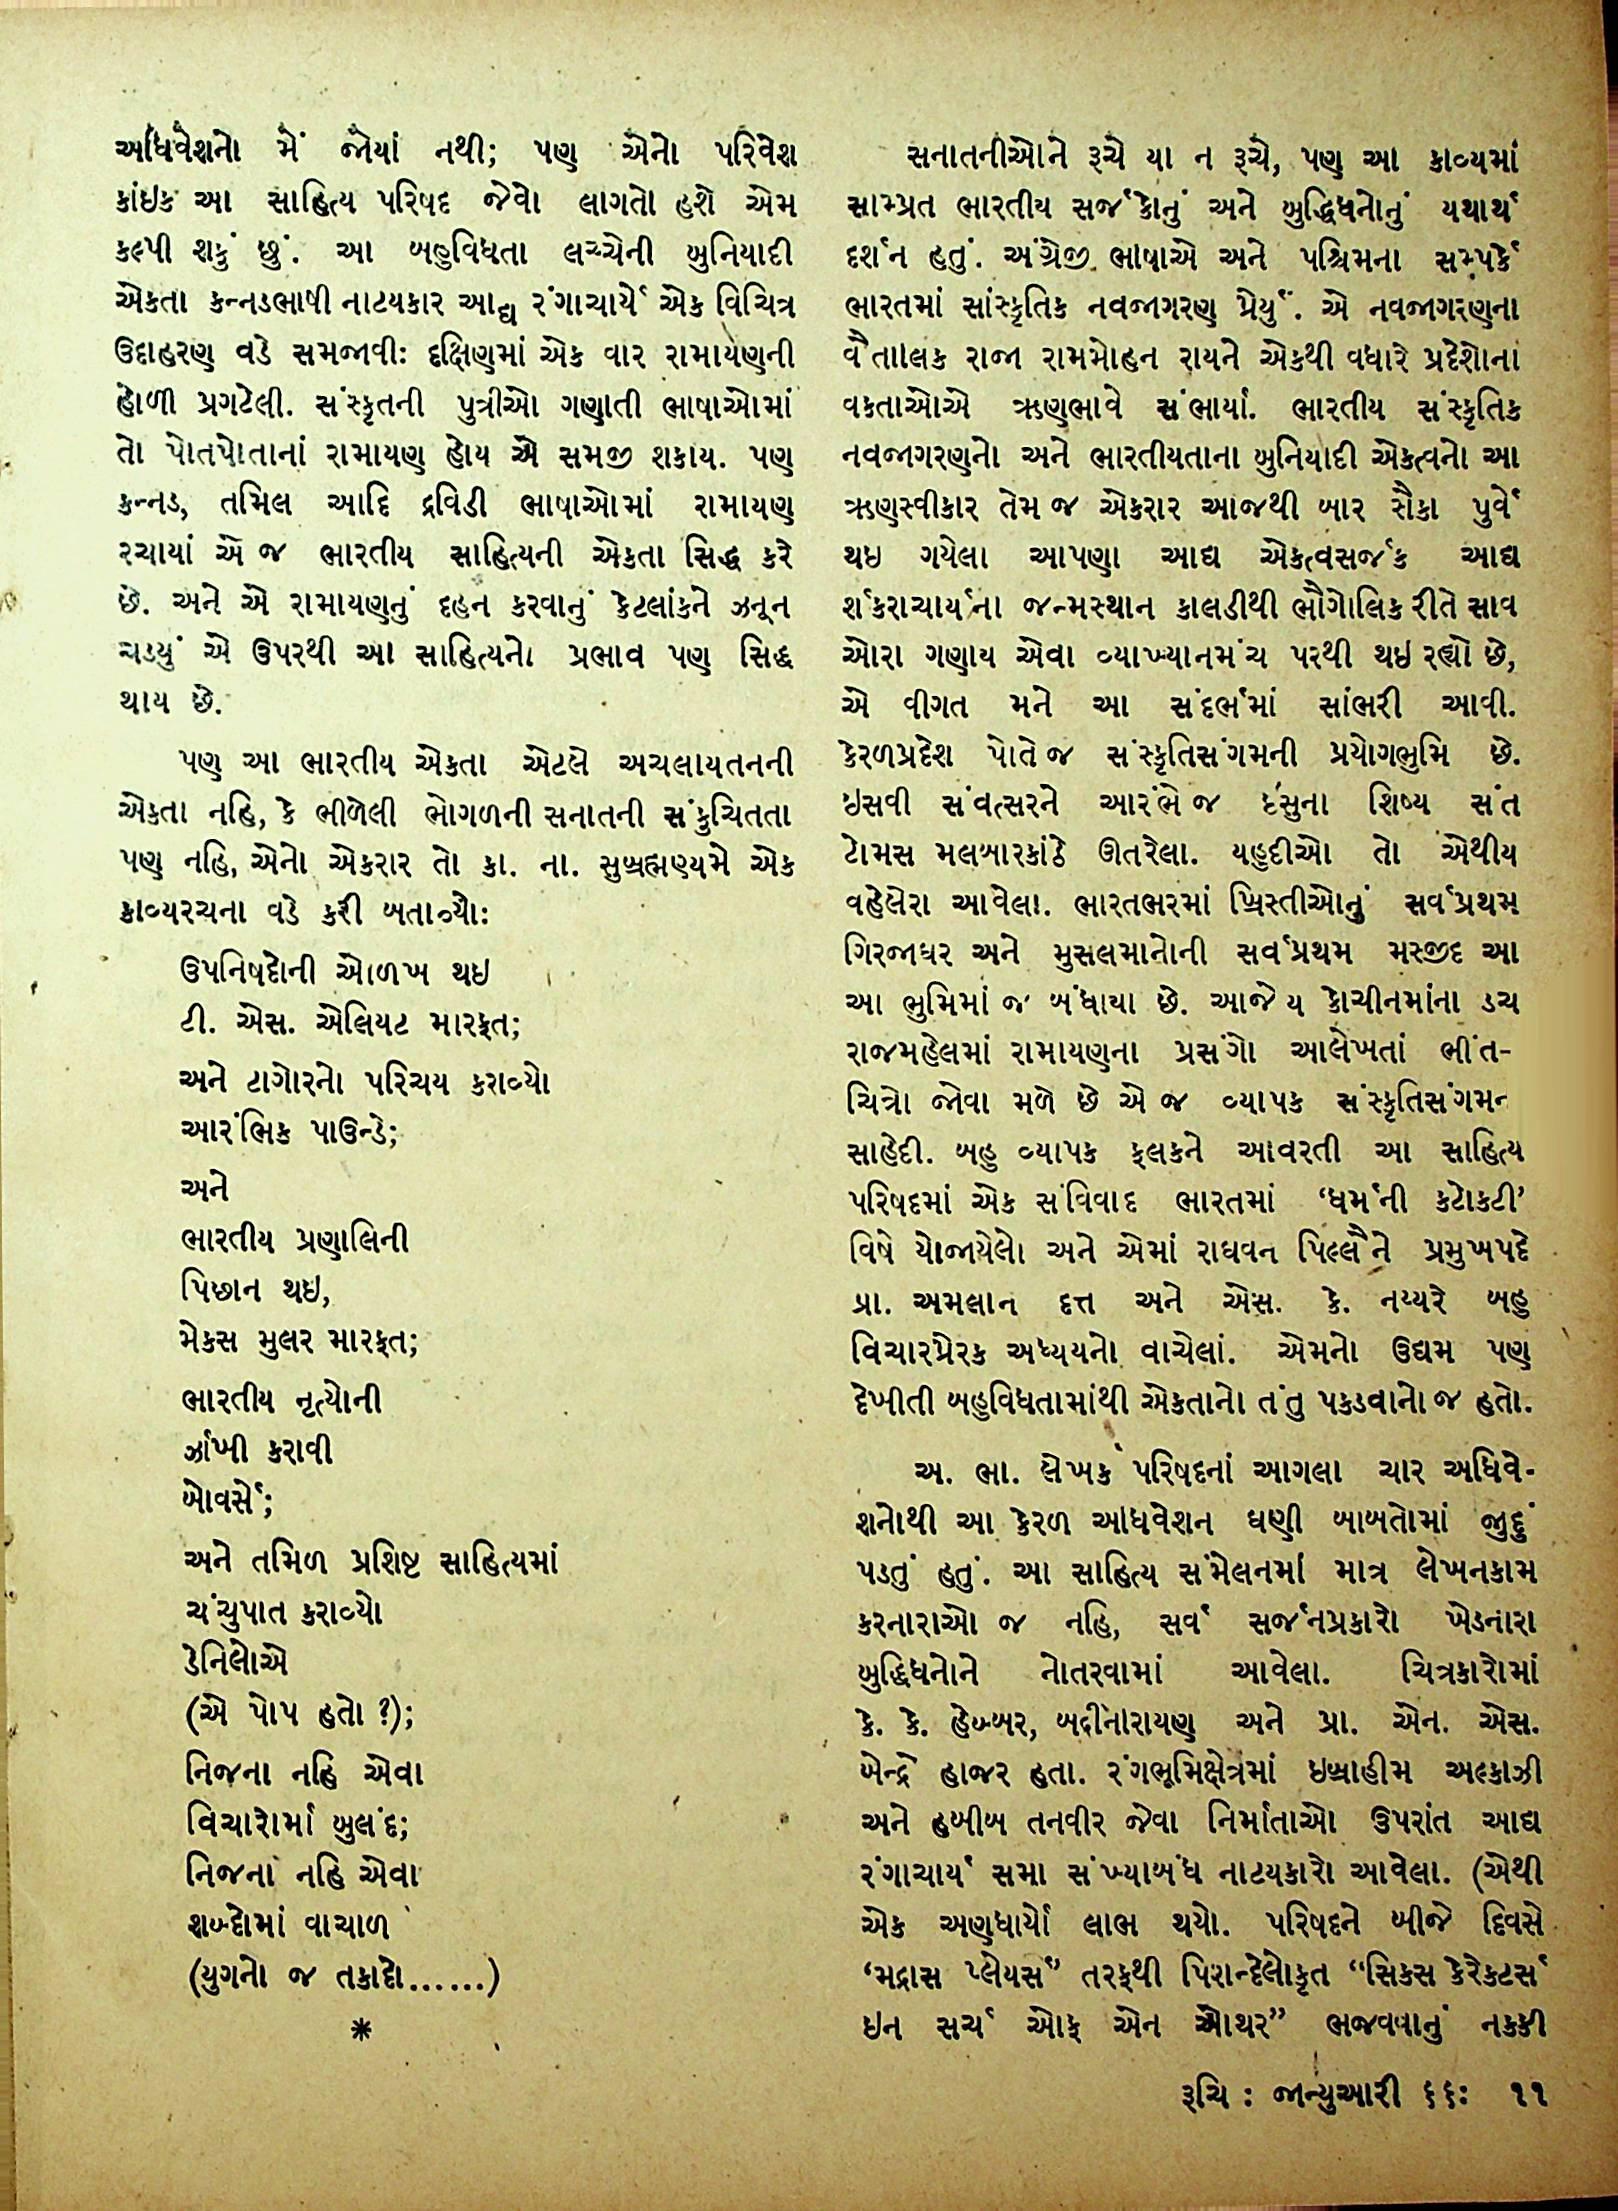 અધિવેશનો મેં જોયાં નથી; પણ એનો પરિવેશ
કાંઇક આ સાહિત્ય પરિષદ જેવો લાગતો હશે એમ
કલ્પી શકું છું. આ બહુવિધતા વચ્ચેની બુનિયાદી
એકતા કન્નડભાષી નાટયકાર આદ્ય રંગાચાર્યે એક વિચિત્ર
ઉદાહરણ વડે સમજાવી: દક્ષિણમાં એક વાર રામાયણની
હોળી પ્રગટેલી. સંસ્કૃતની પુત્રીઓ ગણાતી ભાષાઓમાં
તો પોતપોતાનાં રામાયણ હોય એ સમજી શકાય. પણ
કન્નડ, તમિલ આદિ દ્રવિડી ભાષાઓમાં રામાયણ
રચાયાં એ જ ભારતીય સાહિત્યની એકતા સિદ્ધ કરે
છે. અને એ રામાયણનું દહન કરવાનું કેટલાંકને ઝનૂન
ચડયું એ ઉપરથી આ સાહિત્યનો પ્રભાવ પણ સિદ્ધ
થાય છે.
પણ આ ભારતીય એકતા એટલે અચલાયતનની
એકતા નહિ, કે ભીળેલી ભોગળની સનાતની સંકુચિતતા
પણ નહિ, એનો એકરાર તો કા. ના. સુબ્રહ્મણ્યમે એક
કાવ્યરચના વડે કરી બતાવ્યો:
ઉપનિષદોની ઓળખ થઇ
ટી. એસ. એલિયટ મારફત;
અને ટાગોરનો પરિચય કરાવ્યો
આરંભિક પાઉન્ડે;
અને
ભારતીય પ્રણાલિની
પિછાન થઇ,
મેકસ મુલર મારફત;
ભારતીય નૃત્યોની
ઝાંખી કરાવી
બોવર્સે;
અને તમિળ પ્રશિષ્ટ સાહિત્યમાં
ચંચુપાત કરાવ્યો
ડેનિલોએ
(એ પોપ હતો ?);
નિજના નહિ એવા
વિચારોમાં બુલંદ;
નિજના નહિ એવા
શબ્દોમાં વાચાળ
(યુગનો જ તકાદો......)
*
સનાતનીઓને રૂચે યા ન રૂચે, પણ આ કાવ્યમાં
સામ્પ્રત ભારતીય સર્જકોનું અને બુદ્ધિધનોનું યથાર્થ
દર્શન હતું. અંગ્રેજી ભાષાએ અને પશ્ચિમના સમ્પર્કે
ભારતમાં સાંસ્કૃતિક નવજાગરણ પ્રેર્યું. એ નવજાગરણના
વૈતાલિક રાજા રામમોહન રાયને એકથી વધારે પ્રદેશોના
વકતાઓએ ઋણભાવે સંભાર્યા. ભારતીય સંસ્કૃતિક
નવજાગરણનો અને ભારતીયતાના બુનિયાદી એકત્વનો આ
ઋણસ્વીકાર તેમ જ એકરાર આજથી બાર સૈકા પુર્વે
થઇ ગયેલા આપણા આદ્ય એકત્વસર્જક આદ્ય
શંકરાચાર્યના જન્મસ્થાન કાલડીથી ભૌગોલિક રીતે સાવ
ઓરા ગણાય એવા વ્યાખ્યાનમંચ પરથી થઇ રહ્યો છે,
એ વીગત મને આ સંદર્ભમાં સાંભરી આવી.
કેરળપ્રદેશ પોતે જ સંસ્કૃતિસંગમની પ્રયોગભુમિ છે.
ઇસવી સંવત્સરને આરંભે જ ઇસુના શિષ્ય સંત
ટોમસ મલબારકાંઠે ઊતરેલા. યહુદીઓ તો એથીય
વહેલેરા આવેલા. ભારતભરમાં ખ્રિસ્તીઓનું સર્વપ્રથમ
ગિરજાઘર અને મુસલમાનોની સર્વપ્રથમ મસ્જીદ આ
આ ભુમિમાં જ બંધાયા છે. આજે ય કોચીનમાંના ડચ
રાજમહેલમાં રામાયણના પ્રસંગો આલેખતાં ભીંત-
ચિત્રો જોવા મળે છે એ જ વ્યાપક સંસ્કૃતિસંગમન
સાહેદી. બહુ વ્યાપક ફલકને આવરતી આ સાહિત્ય
પરિષદમાં એક સંવિવાદ ભારતમાં ‘ધર્મની કટોકટી’
વિષે યોજાયેલો અને એમાં રાઘવન પિલ્લૈને પ્રમુખપદે
પ્રા. અમલાન દત્ત અને એસ. કે. નય્યરે બહુ
વિચારપ્રેરક અધ્યયનો વાચેલાં. એમનો ઉદ્યમ પણ
દેખીતી બહુવિધતામાંથી એકતાનો તંતુ પકડવાનો જ હતો.
અ. ભા. લેખક પરિષદનાં આગલા ચાર અધિવે-
શનોથી આ કેરળ અધિવેશન ઘણી બાબતોમાં જુદું
પડતું હતું. આ સાહિત્ય સંમેલનમાં માત્ર લેખનકામ
કરનારાઓ જ નહિ, સર્વ સર્જનપ્રકારો ખેડનારા
બુદ્ધિધનોને નોતરવામાં આવેલા. ચિત્રકારોમાં
કે. કે. હેબ્બર, બદ્રીનારાયણ અને પ્રા. એન. એસ.
બેન્દ્રે હાજર હતા. રંગભૂમિક્ષેત્રમાં ઇબ્રાહીમ અલ્કાઝી
અને હબીબ તનવીર જેવા નિર્માતાઓ ઉપરાંત આદ્ય
રંગાચાર્ય સમા સંખ્યાબંધ નાટયકારો આવેલા. (એથી
એક અણધાર્યો લાભ થયો. પરિષદને બીજે દિવસે
‘મદ્રાસ પ્લેયર્સ” તરફથી પિરાન્દેલોકૃત “સિકસ કેરેકટર્સ
ઇન સર્ચ ઓફ એન ઓથર” ભજવવાનું નકકી
રૂચિ : જાન્યુઆરી ૬૬: ૧૧